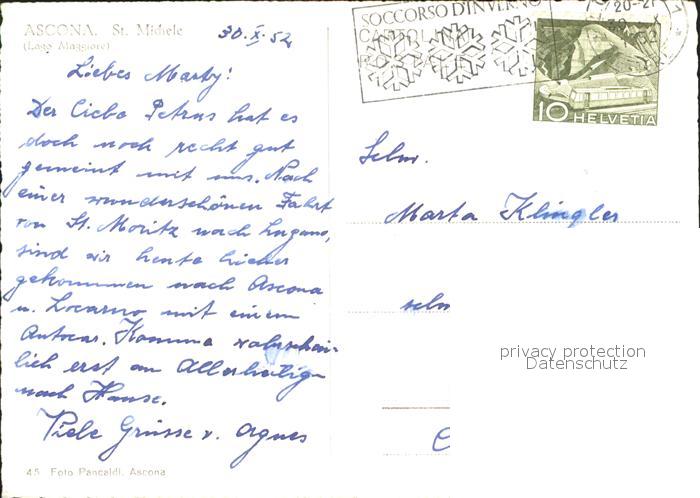 ASCONA. St. Michele
(Lago Maggiore)
30. X. 52
Liebes Marty!
Der liebe Petrus hat es
doch noch recht gut
gemeint mit uns. Nach
einer wunderschönen Fahrt
von St. Moritz nach Lugano,
sind wir heute hieher
gekommen nach Ascona
u. Locarno mit einem
Autocar. Komme wahrschein-
lich erst an Allerheilige
nach Hause.
Viele Grüsse v. Agnes
45 Foto Pancaldi, Ascona
SOCCORSO D'INVERNO
20-21
10 HELVETIA
Schw.
Marta Klingler
schw
privacy protection
Datenschutz